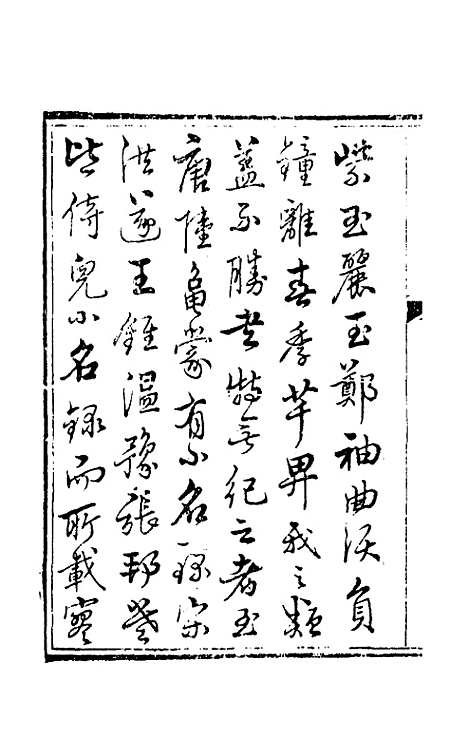 紫玉麗玉鄭袖曲沃負
鐘離春季芈畀我之類
蓋不勝書特無紀之者至
唐陸龜蒙有小名錄宋
洪遂王銍溫豫張邦幾
皆侍兒小名錄而所載寥